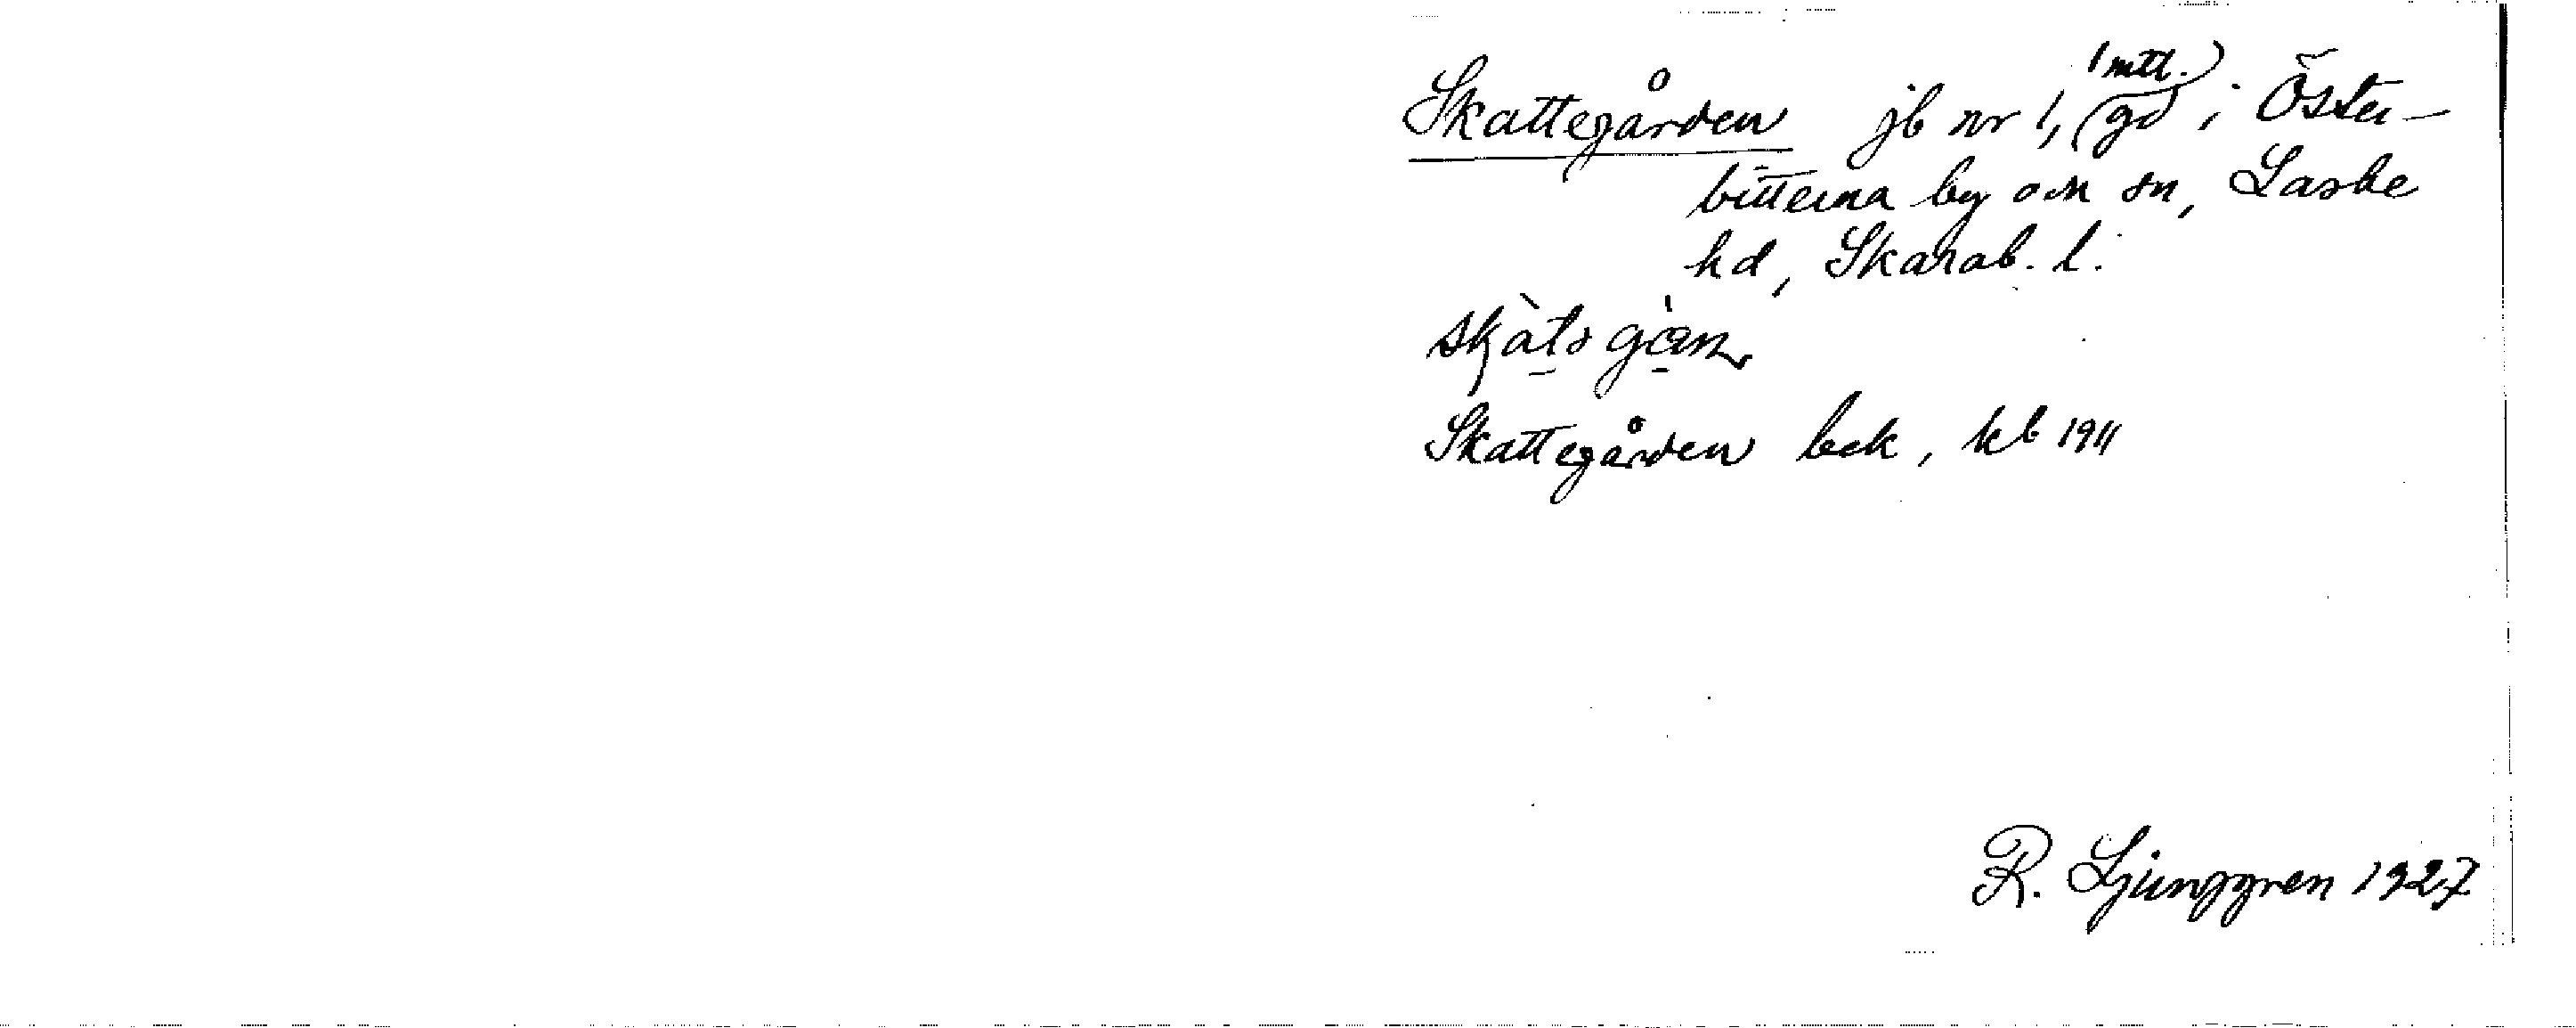 Skattegården jb nr 1, (gd 1 mtl.) i Öster-
bitterna by och sn, Laske
hd, Skarab. l.
Skattegården bek, kb 1911
R. Ljunggren 1927